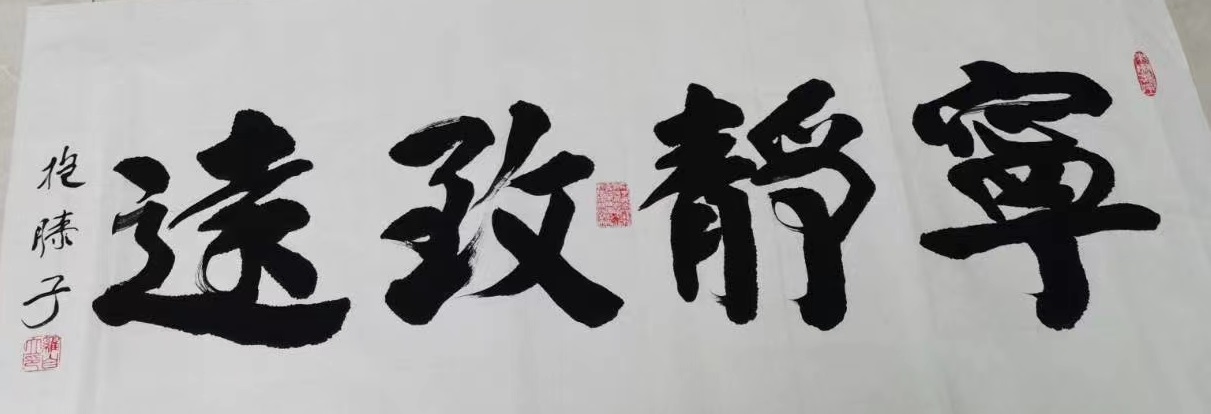 寧靜致遠
抱膝子